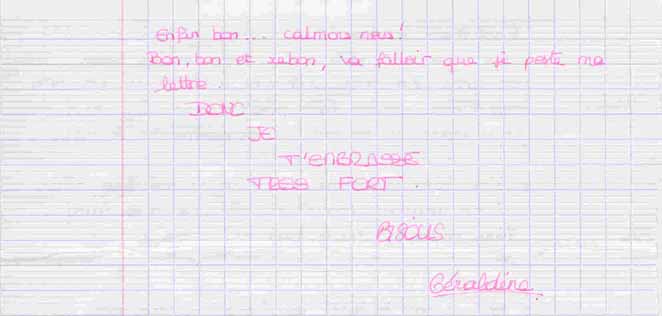 Enfin bon... calmons nous!
Bon, bon et rebon, va falloir que je poste ma
lettre.
DONC
JE
T'EMBRASSE
TRES FORT.
BISOUS
Géraldine